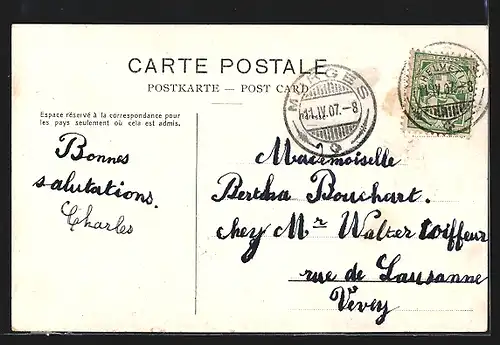 CARTE POSTALE
POSTKARTE — POST CARD
Espace réservé à la correspondance pour
les pays seulement où cela est admis.
MORGES
11.IV.07.-8
HELVETIA
11.IV.07.-8
Bonnes
salutations.
Charles
Mademoiselle
Bertha Bouchart.
chez Mr Walter coiffeur
rue de Lausanne
Vevey